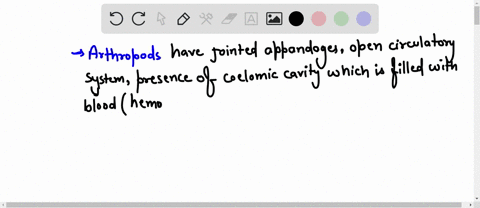 → Arthropods have jointed appandages, open circulatory
system, presence of coelomic cavity which is filled with
blood (hemo